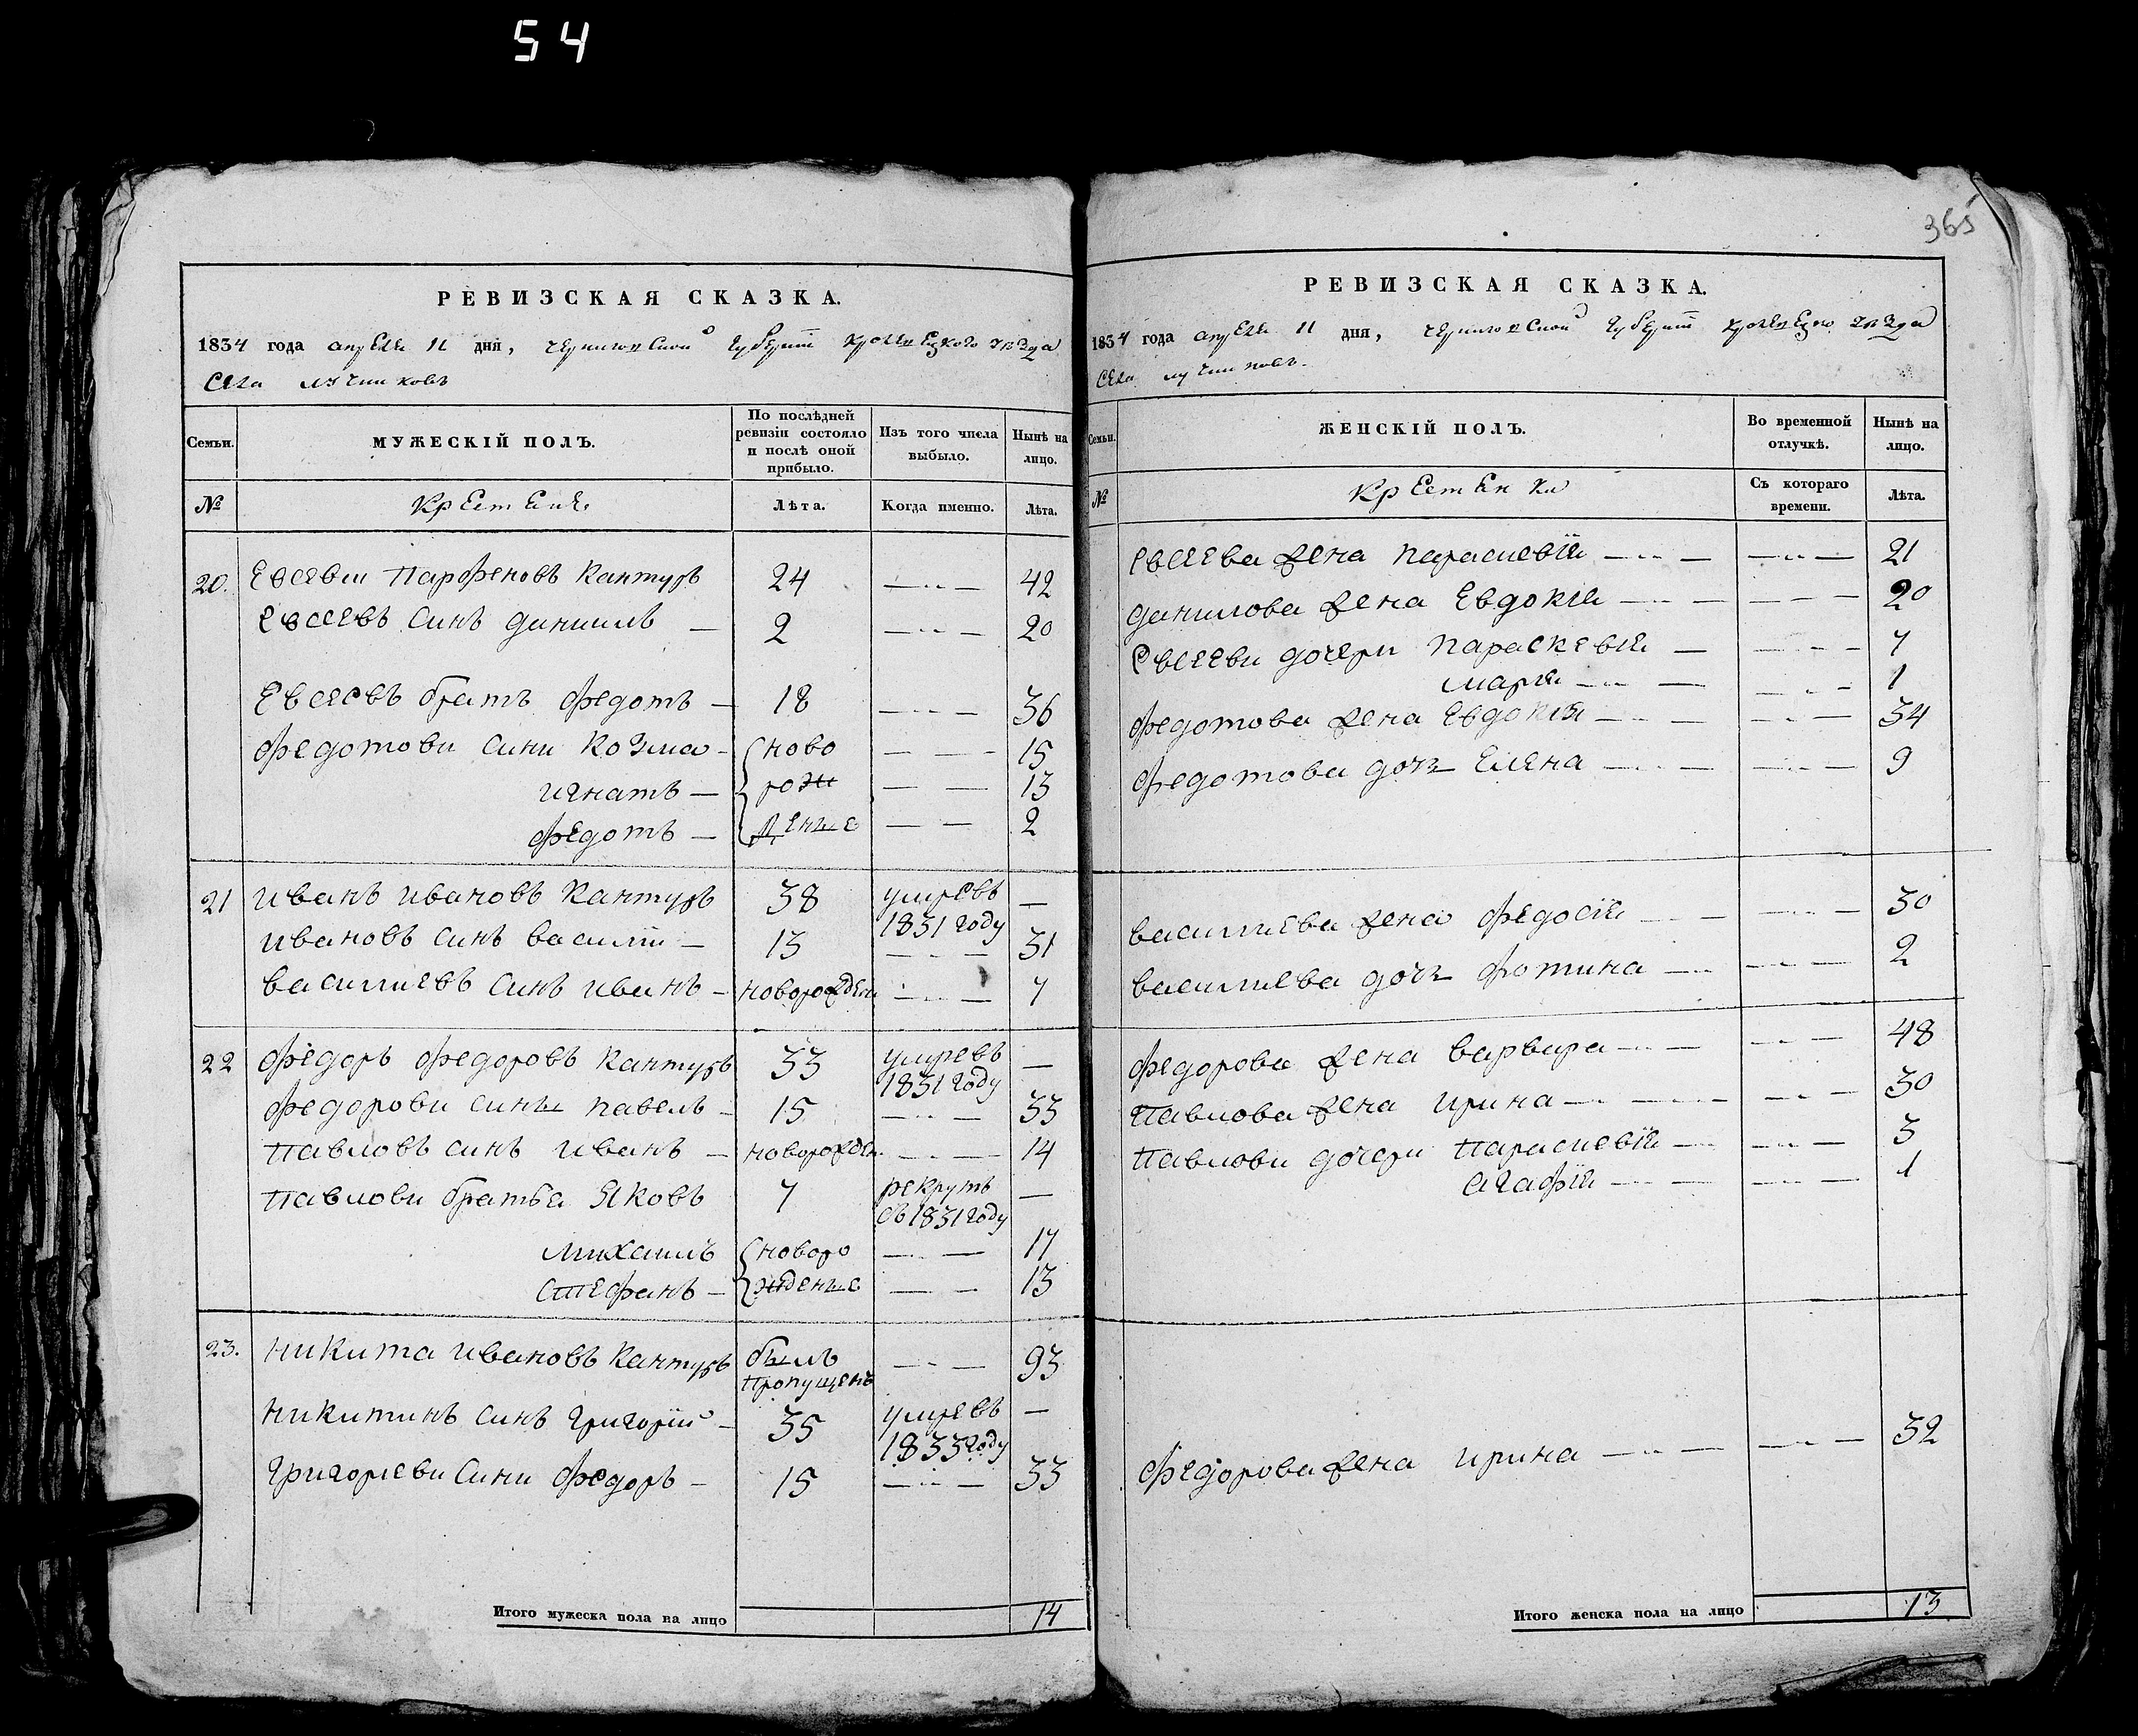 54
365
РЕВИЗСКАЯ СКАЗКА.
1834 года апреля 11 дня, черниговской губерніи кролевецкого уѣзда
села лучниковъ
Семьи.
МУЖЕСКІЙ ПОЛЪ.
По послѣдней ревизіи состояло и послѣ оной прибыло.
Изъ того числа выбыло.
Нынѣ на лицо.
№
Крестяне
Лѣта.
Когда именно.
Лѣта.
20. Евсевии Парфеновъ Кантуръ 24 — 42
Евсеевъ синъ даниилъ — 2 — 20
Евсеевъ братъ федотъ — 18 — 36
федотови сини Козма — ново — 15
игнатъ — рож — 13
федотъ — деные — 2
21 иванъ ивановъ Кантуръ 38 умревъ 1831 году —
ивановъ синъ василіи — 13 — 31
василиевъ синъ иванъ — новорожден — 7
22 федоръ федоровъ Кантуръ 33 умревъ 1831 году —
федорови сины павелъ — 15 — 33
павловъ синъ иванъ — новорожден. — 14
павлови братья Яковъ 7 рекрутъ съ 1831 году —
михаилъ новоро — 17
стефанъ — ждение — 13
23. никита ивановъ Кантуръ былъ пропущенъ — 93
никитинъ синъ григорій — 35 умревъ 1833 году —
григориеви сини федоръ — 15 — 33
Итого мужеска пола на лицо 14
РЕВИЗСКАЯ СКАЗКА.
1834 года апреля 11 дня, черниговской губерніи кролевецкого уѣзда
села лучниковъ.
Семьи.
ЖЕНСКІЙ ПОЛЪ.
Во временной отлучкѣ.
Нынѣ на лицо.
№
Крестянки
Съ котораго времени.
Лѣта.
евсеева жена параскевія — — 21
данилова жена Евдокія — — 20
Евсееви дочери параскевія — — 7
марія — — 1
федотова жена Евдокія — — 34
федотова дочь Елена — — 9
василиева жена федосія — — 30
василиева дочь фотина — — 2
федорова жена варвара — — 48
павлова жена ирина — — 30
павлови дочери параскевія — — 3
агафія — — 1
федорова жена ирина — — 32
Итого женска пола на лицо 13